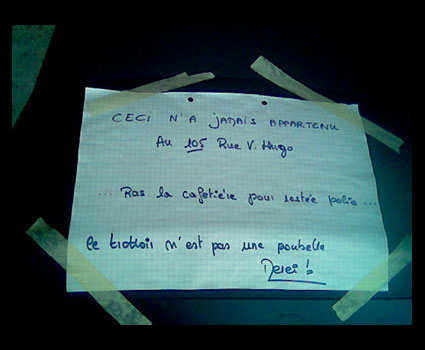 CECI N'A JAMAIS APPARTENU
Au 105 Rue V. Hugo
... Ras la cafetière pour restée polie ...
le trottoir n'est pas une poubelle
Merci !